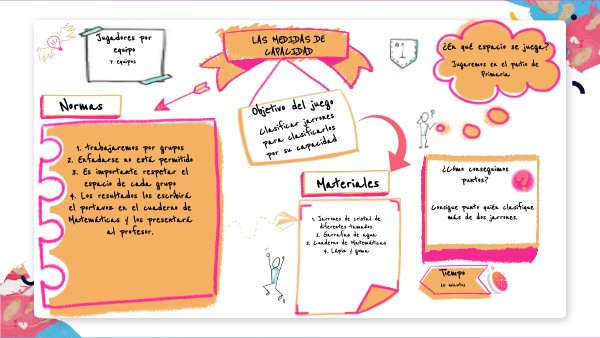 LAS MEDIDAS DE
CAPACIDAD
Jugadores por
equipo
7 equipos
¿En qué espacio se juega?
Jugaremos en el patio de
Primaria
Normas
1. Trabajaremos por grupos
2. Enfadarse no está permitido
3. Es importante respetar el
espacio de cada grupo
4. Los resultados los escribirá
el portavoz en el cuaderno de
Matemáticas y los presentará
al profesor.
Objetivo del juego
Clasificar jarrones
para clasificarlos
por su capacidad
Materiales
1. Jarrones de cristal de
diferentes tamaños
2. Garrafas de agua
3. Cuaderno de Matemáticas
4. Lápiz y goma
¿Cómo conseguimos
puntos?
Consigue punto quién clasifique
más de dos jarrones.
Tiempo
60 minutos